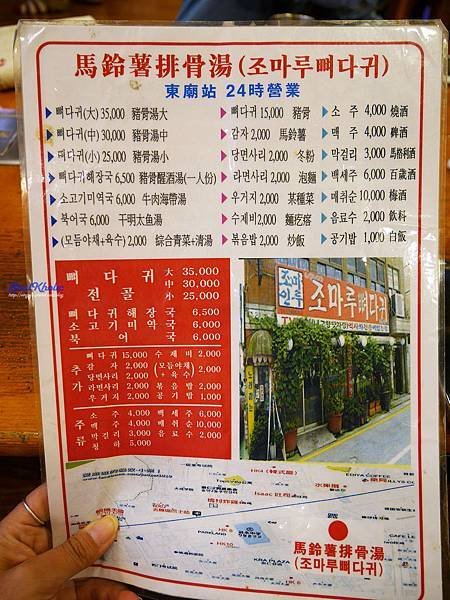 馬鈴薯排骨湯(조마루뼈다귀)
東廟站 24時營業
뼈다귀(大) 35,000 豬骨湯大
뼈다귀(中) 30,000 豬骨湯中
뼈다귀(小) 25,000 豬骨湯小
뼈다귀해장국 6,500 豬骨醒酒湯(一人份)
소고기미역국 6,000 牛肉海帶湯
북어국 6,000 干明太鱼湯
(모듬야채+육수) 2,000 綜合青菜+清湯
뼈다귀 15,000 豬骨
감자 2,000 馬鈴薯
당면사리 2,000 冬粉
라면사리 2,000 泡麵
우거지 2,000 某種菜
수제비 2,000 麵疙瘩
볶음밥 2,000 炒飯
소주 4,000 燒酒
맥주 4,000 啤酒
막걸리 3,000 馬格利酒
백세주 6,000 百歲酒
매취순 10,000 梅酒
음료수 2,000 飲料
공기밥 1,000 白飯
뼈다귀 전골
大 35,000
中 30,000
小 25,000
뼈다귀해장국 6,500
소고기미역국 6,000
북어국 6,000
추가
뼈다귀 15,000 수제비 2,000
감자 2,000 (모듬야채+육수) 2,000
당면사리 2,000
라면사리 2,000 볶음밥 2,000
우거지 2,000 공기밥 1,000
주류
소주 4,000 백세주 6,000
맥주 4,000 매취순 10,000
막걸리 3,000 음료수 2,000
청하 5,000
조마루뼈다귀
EDIYA COFFEE
Isaac
PARKLAND
馬鈴薯排骨湯
(조마루뼈다귀)